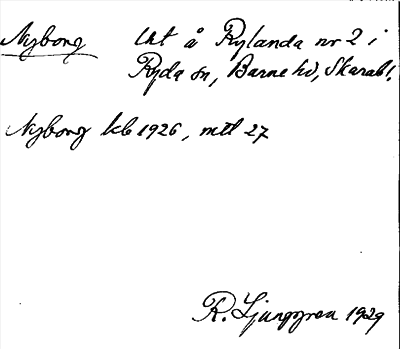 Nyborg Utt å Rylanda nr 2 i
Ryda sn, Barne hd, Skarab l.
Nyborg kb 1926, mtl 27
R. Ljunggren 1929